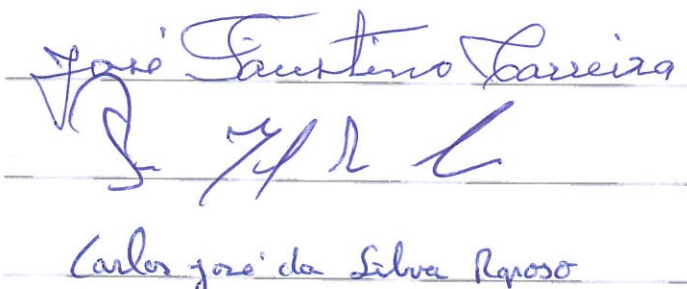 José Faustino Carreira
Carlos José da Silva Raposo